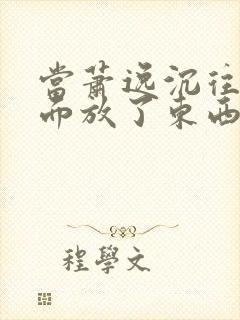 當蕭逸沉往
而放了東西
程學文